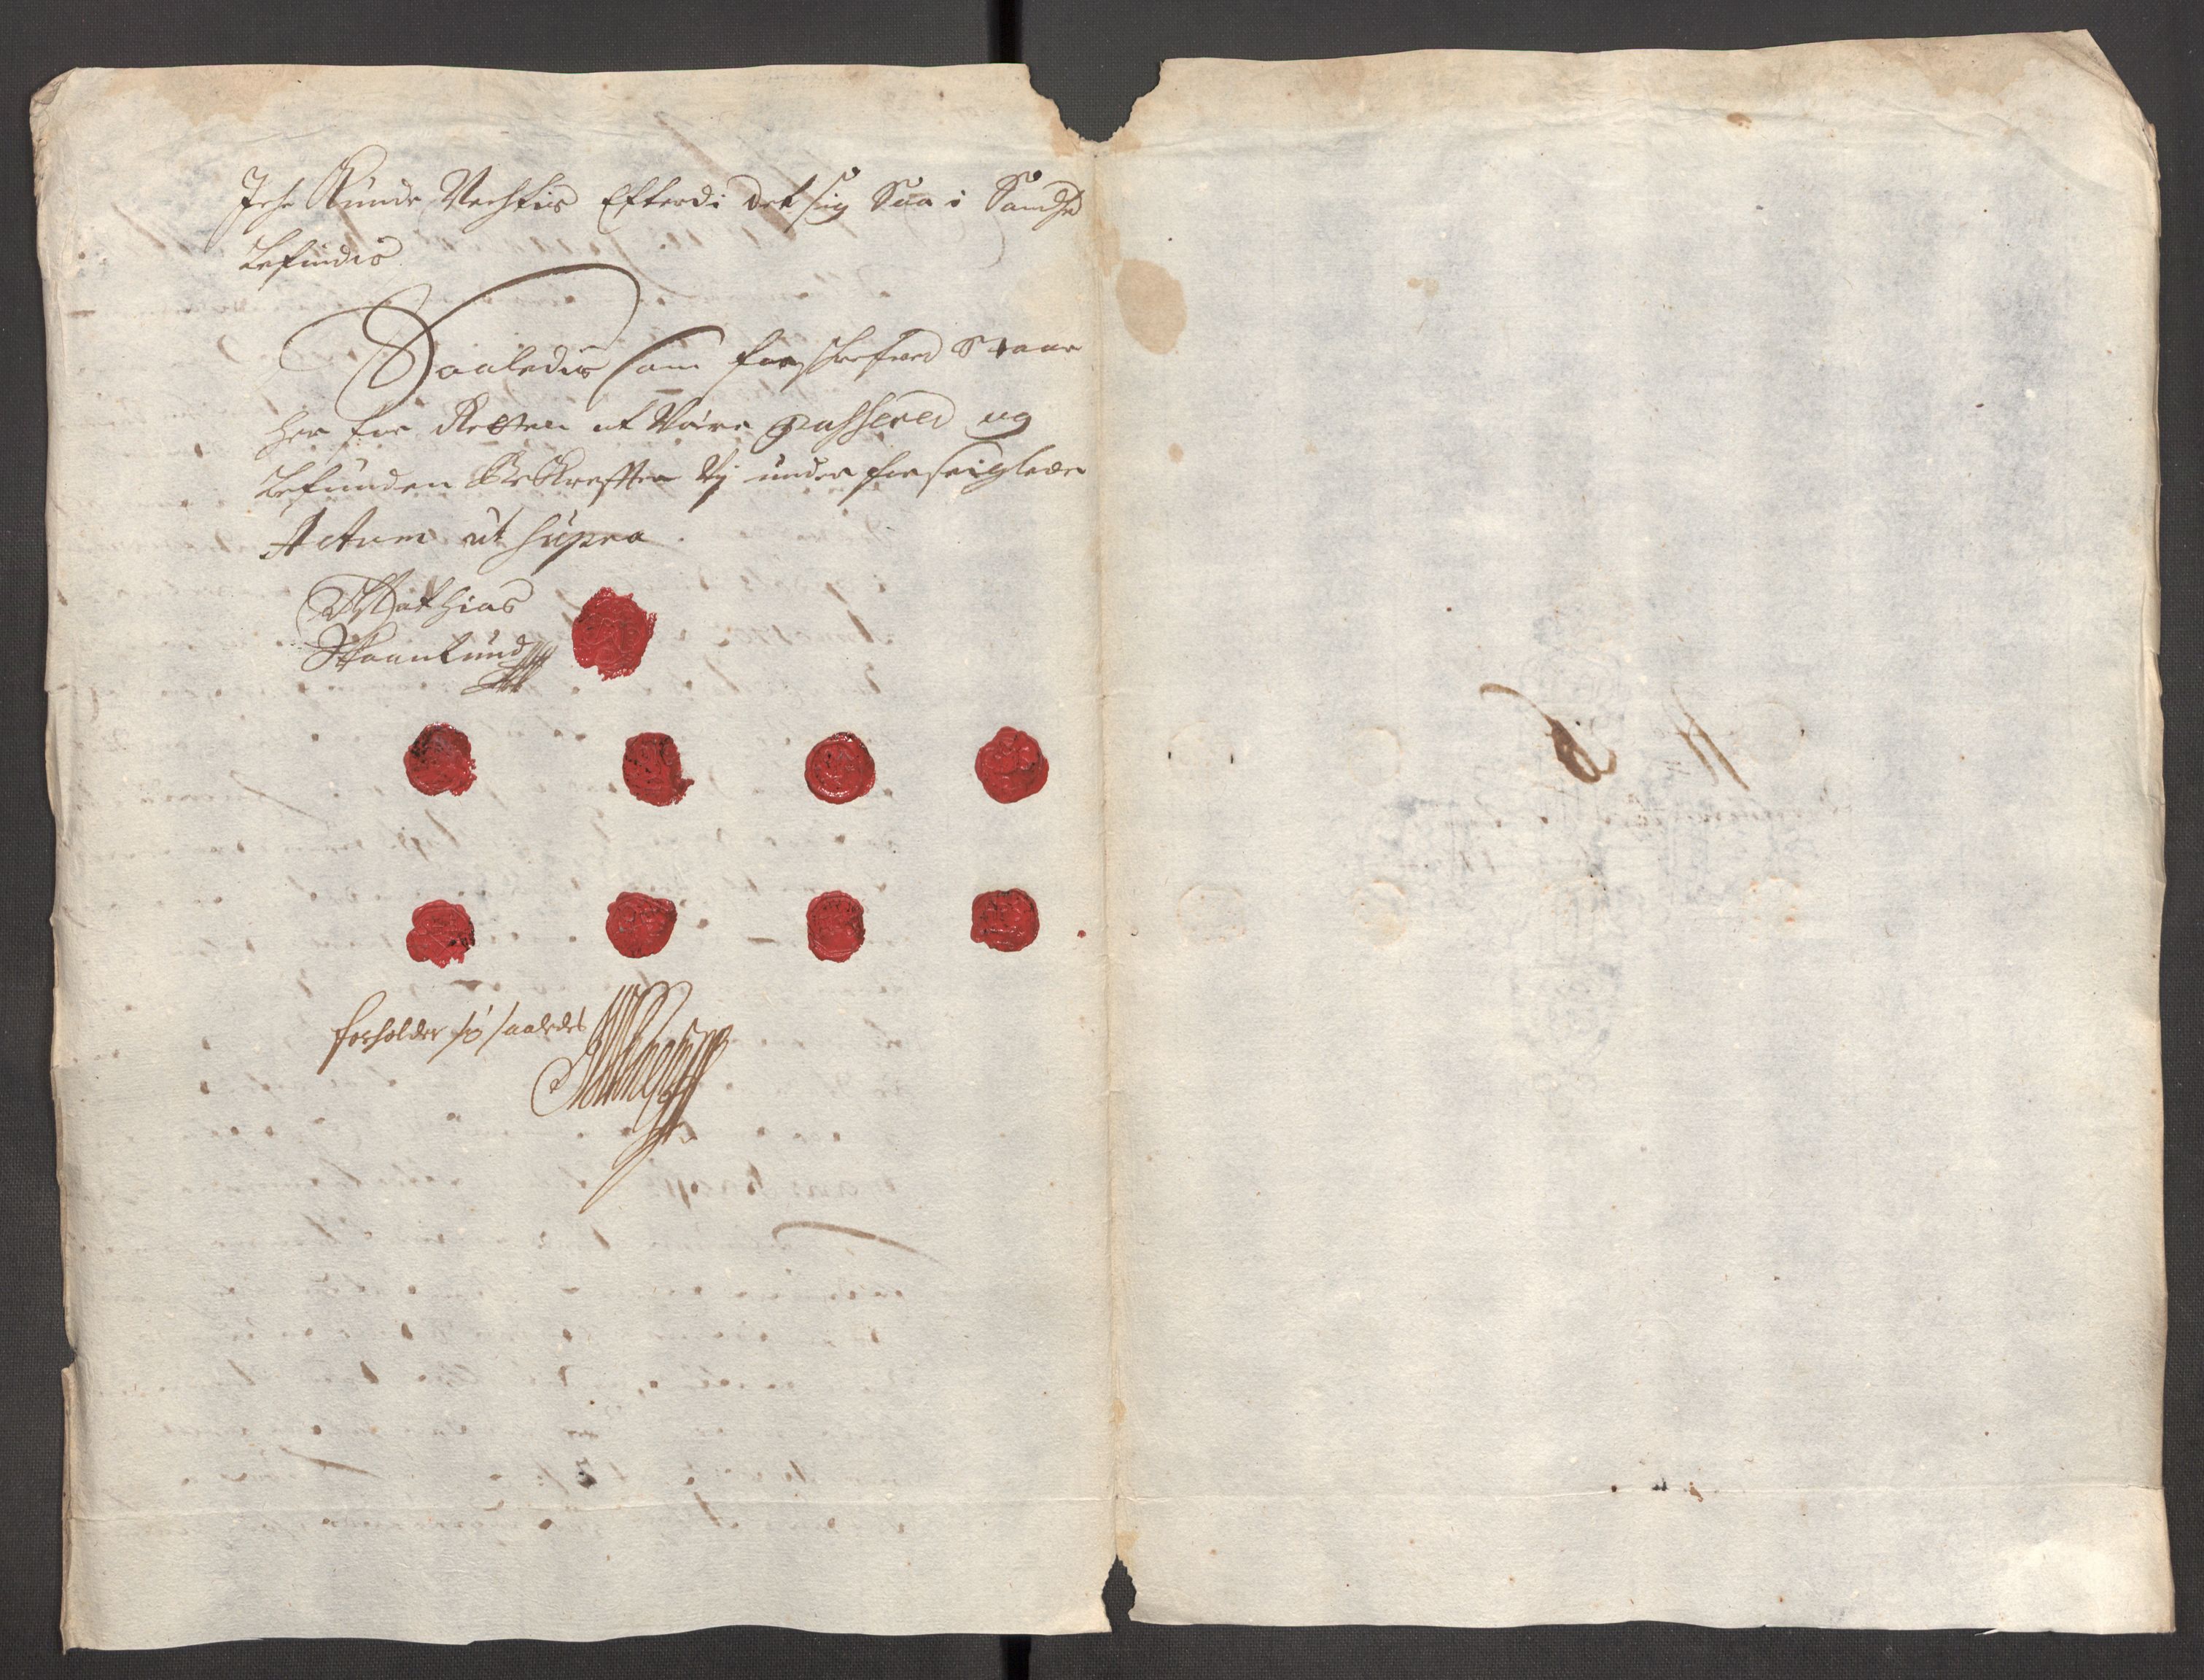 Iche Kunde Negtis Efterdi det sig Saa i Sandhed
befindis
Saaledis som forschrefved Staar
her for Retten at Være passered og
befunden Bekrefter Vj under forseigleer
Actum ut supra.
Mathias
Skaanlund
forholder sig saaledes